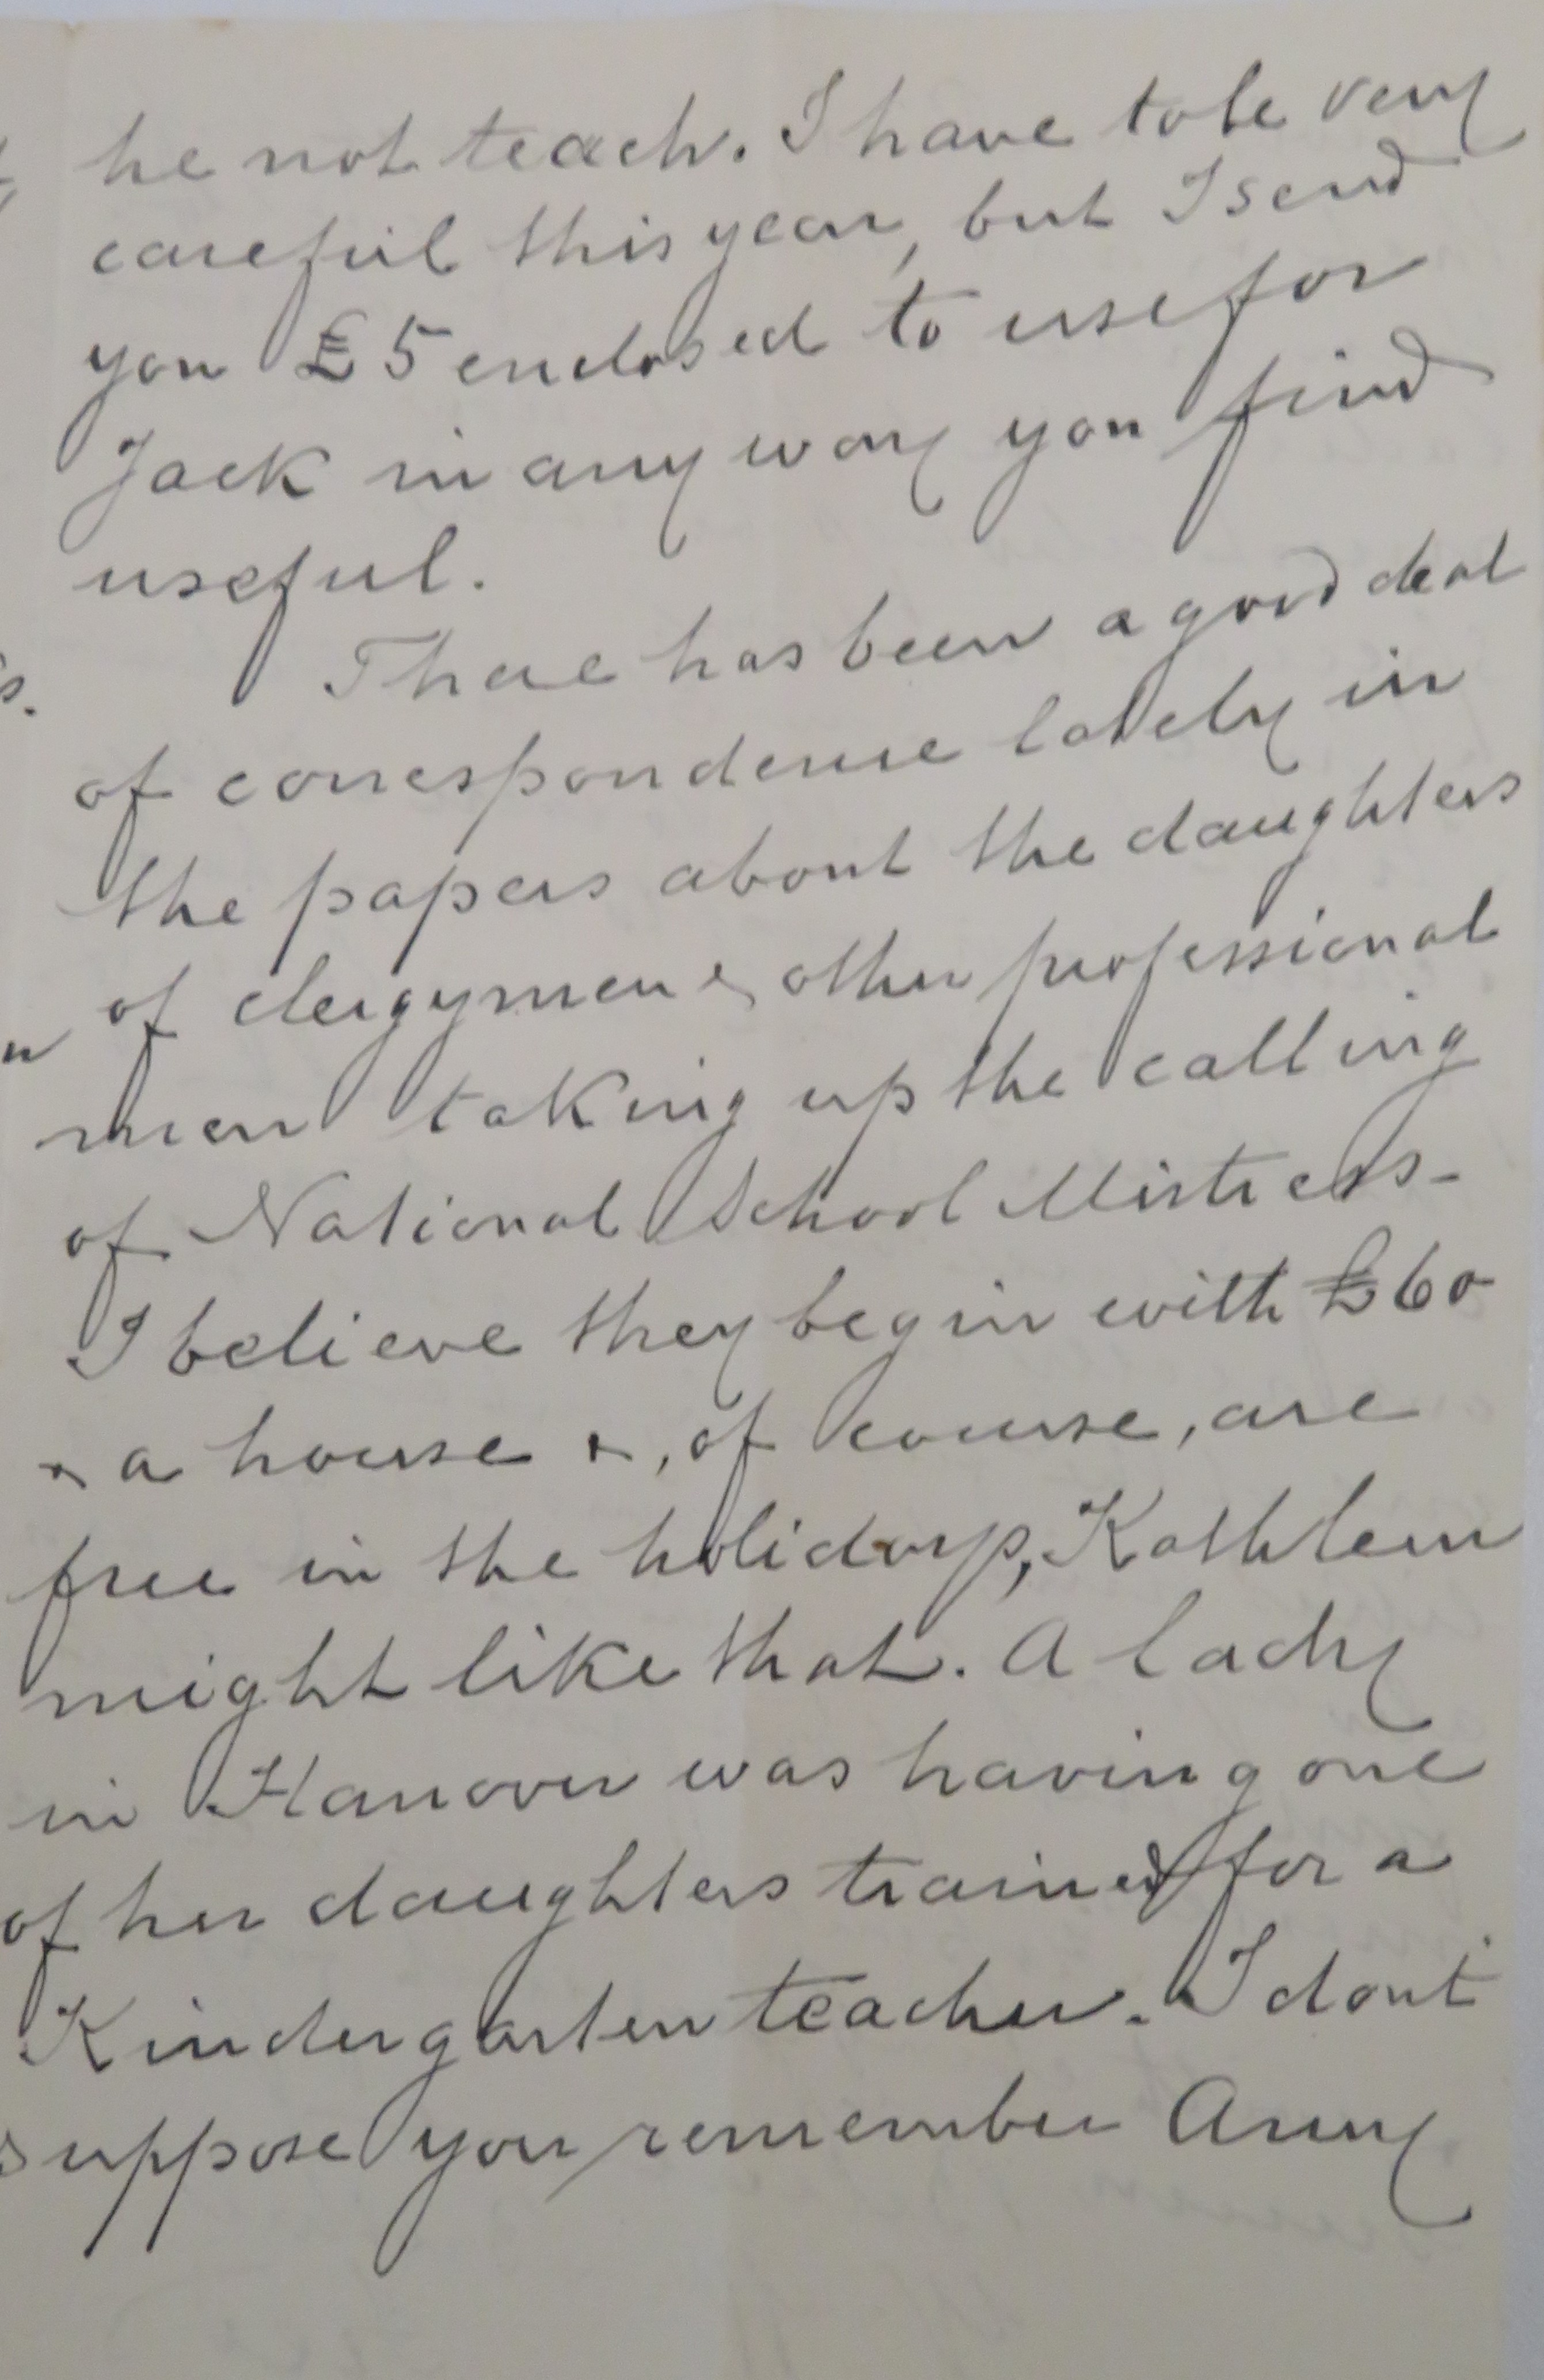 he not teach. I have to be very
careful this year, but I send
you £5 enclosed to use for
Jack in any way you find
useful.
There has been a good deal
of correspondence lately in
the papers about the daughters
of clergymen & other professional
men taking up the calling
of National School Mistress-
I believe they begin with £60
& a house &, of course, are
free in the holidays, Kathleen
might like that. A lady
in Hanover was having one
of her daughters trained for a
Kindergarten teacher. I dont
suppose you remember Amy